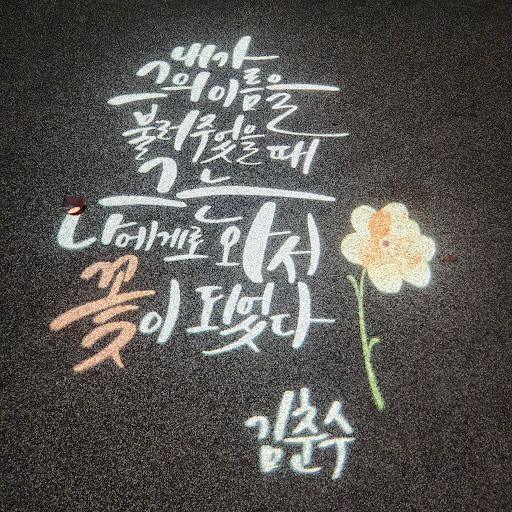 내가
그의 이름을
불러주었을 때
그는
나에게로 와서
꽃이 되었다
김춘수